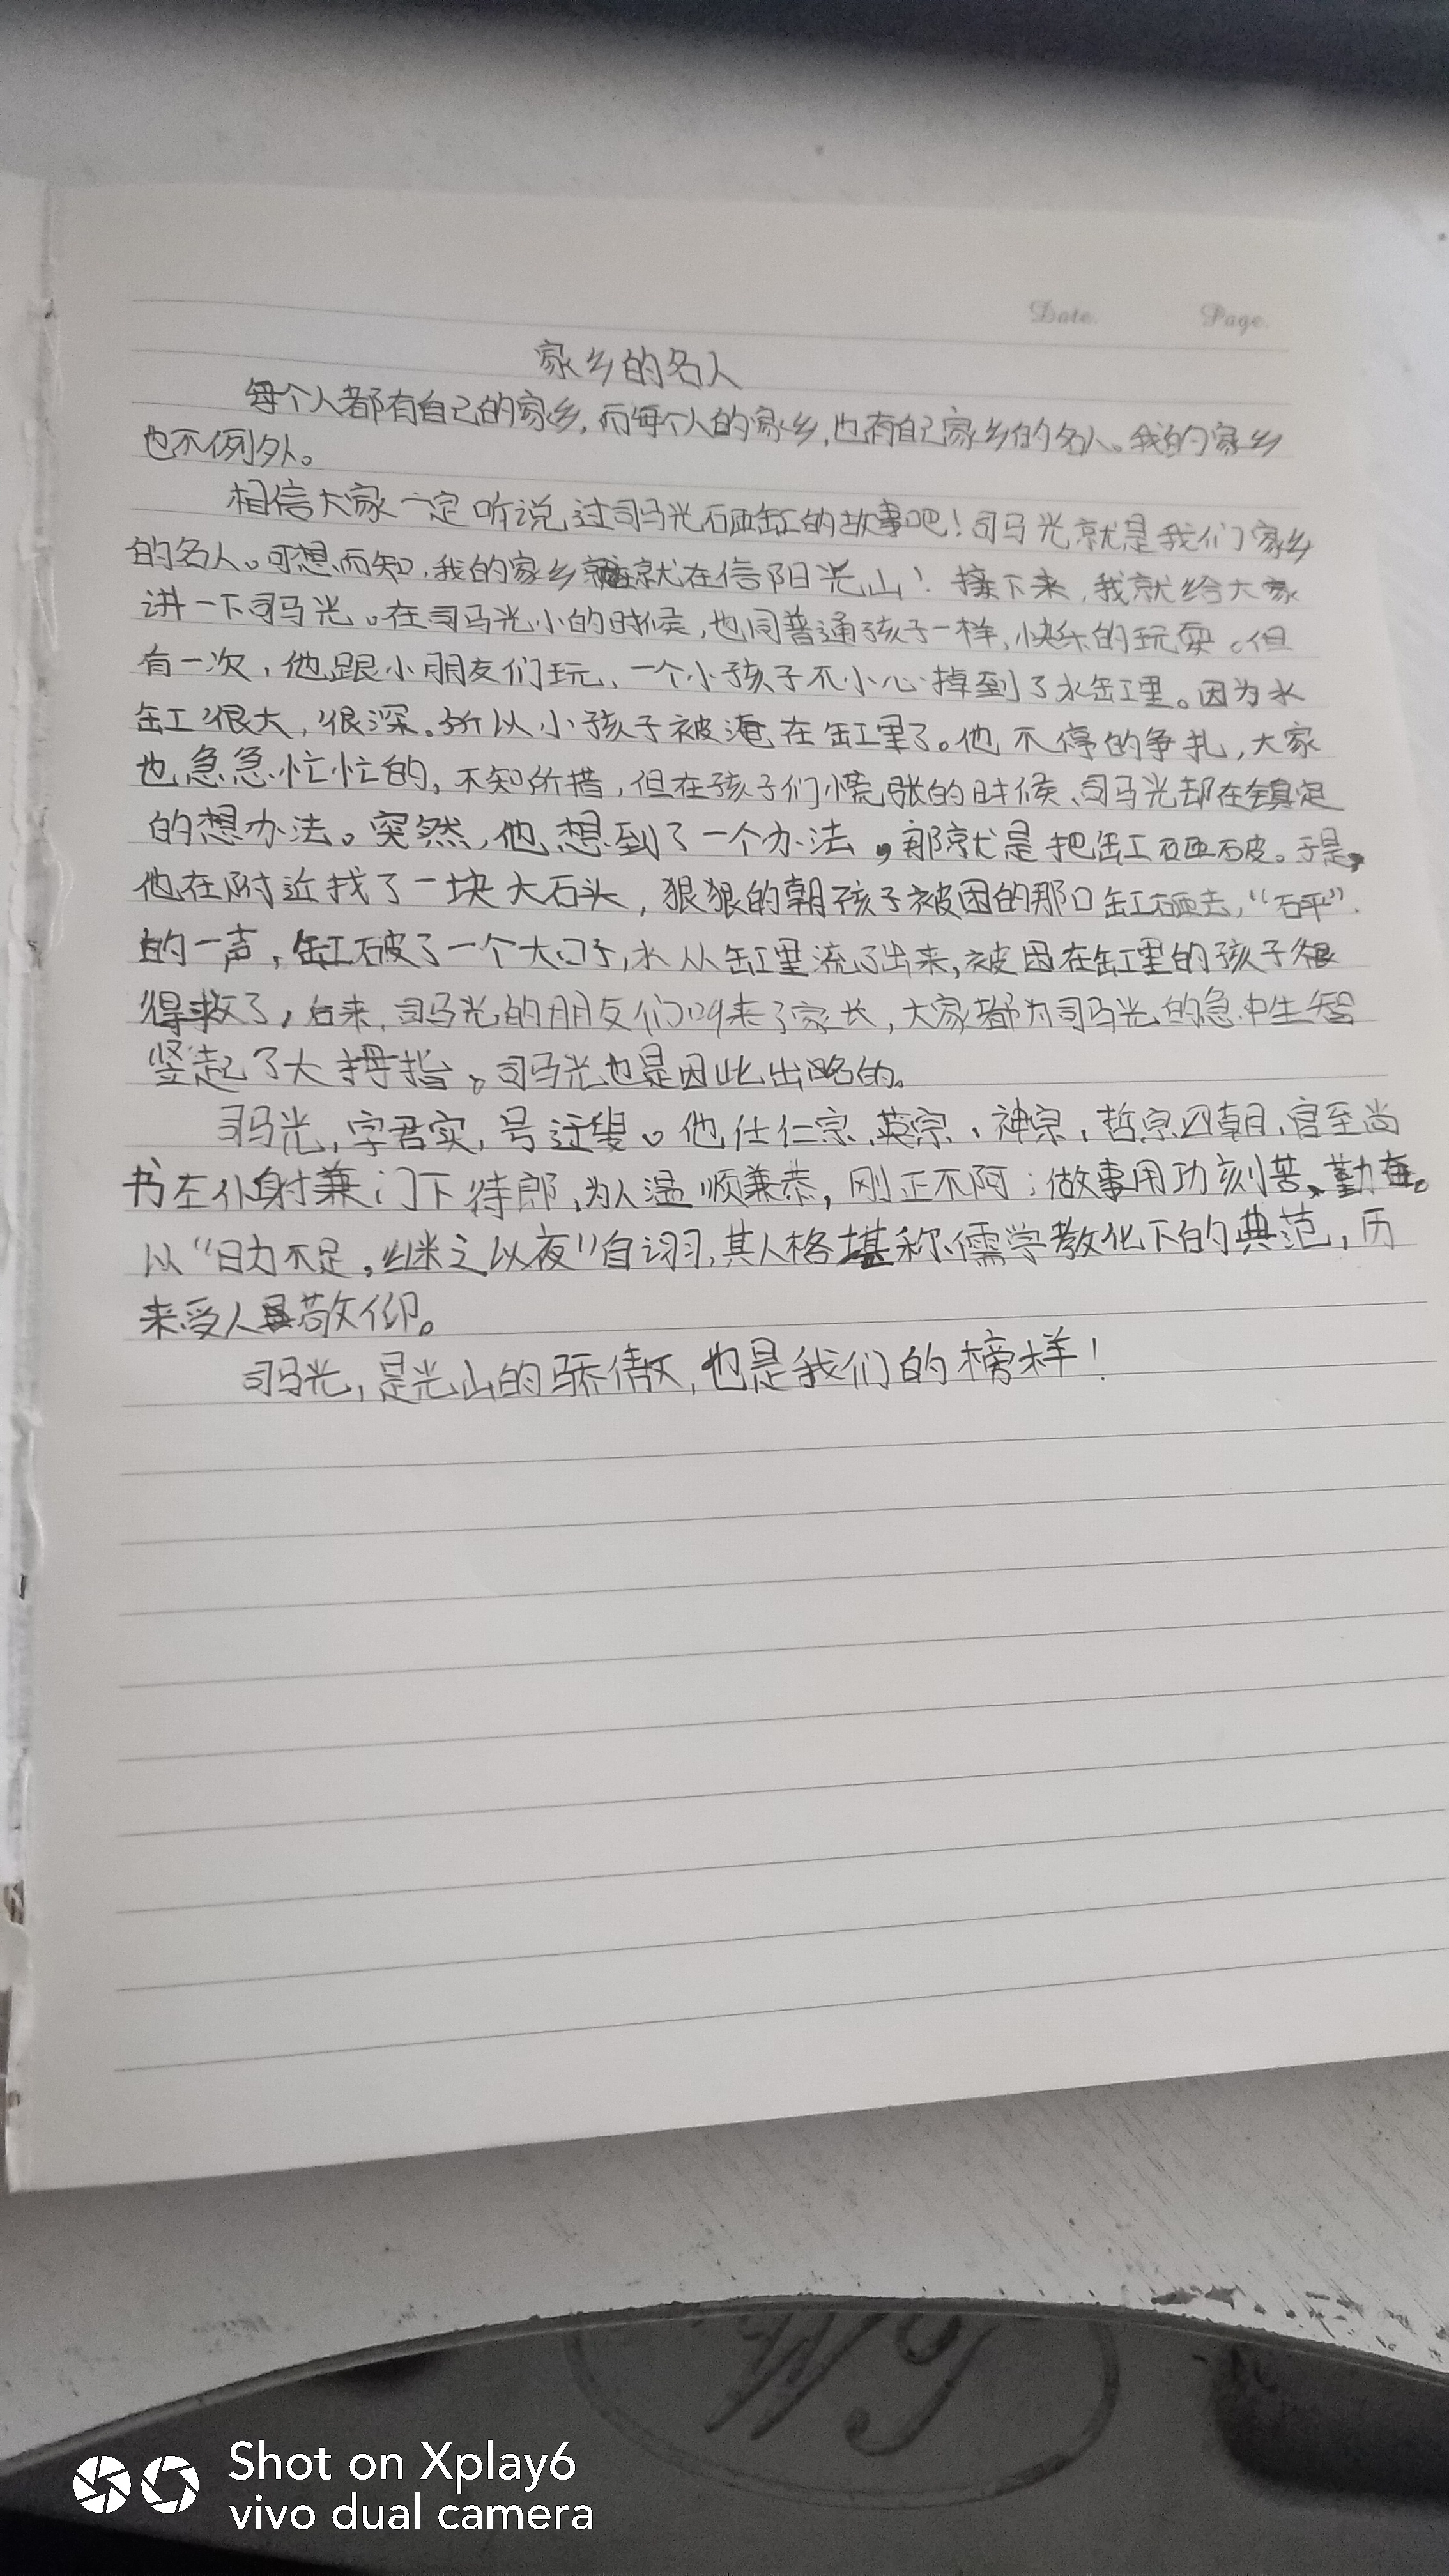 Date.
Page.
家乡的名人
每个人都有自己的家乡,而每个人的家乡,也有自己家乡的名人。我的家乡
也不例外。
相信大家一定听说过司马光砸缸的故事吧!司马光就是我们家乡
的名人。可想而知,我的家乡就在信阳光山!接下来,我就给大家
讲一下司马光。在司马光小的时候,也同普通孩子一样,快乐的玩耍。但
有一次,他跟小朋友们玩、一个小孩子不小心掉到了水缸里。因为水
缸很大,很深。所以小孩子被淹在缸里了。他不停的争扎,大家
也急急忙忙的,不知所措,但在孩子们慌张的时候、司马光却在镇定
的想办法。突然,他想到了一个办法,那就是把缸砸破。于是,
他在附近找了一块大石头,狠狠的朝孩子被困的那口缸砸去,“砰”
的一声,缸破了一个大口子,水从缸里流了出来,被困在缸里的孩子很
得救了,后来,司马光的朋友们叫来了家长,大家都为司马光的急中生智
竖起了大拇指。司马光也是因此出名的。
司马光,字君实,号迂叟。他仕仁宗、英宗、神宗,哲宗四朝,官至尚
书左仆射兼门下侍郎,为人温顺兼恭,刚正不阿;做事用功刻苦、勤奋。
以“日力不足,继之以夜”自诩,其人格堪称儒学教化下的典范,历
来受人敬仰。
司马光,是光山的骄傲,也是我们的榜样!
Shot on Xplay6
vivo dual camera